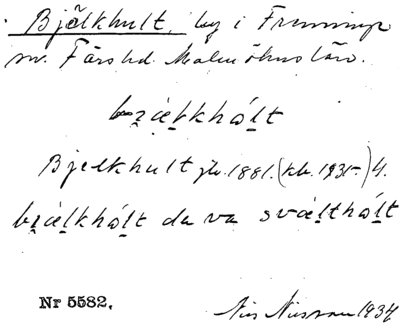 Bjälkhult, by i Fremninge
sn. Färs hd. Malmöhus län.
bjælkhált
Bjelkhult jb. 1881. (kb. 1935-) 4.
bjælkhált da va svælthált
Nr 5582.
Nils Nilsson 1934